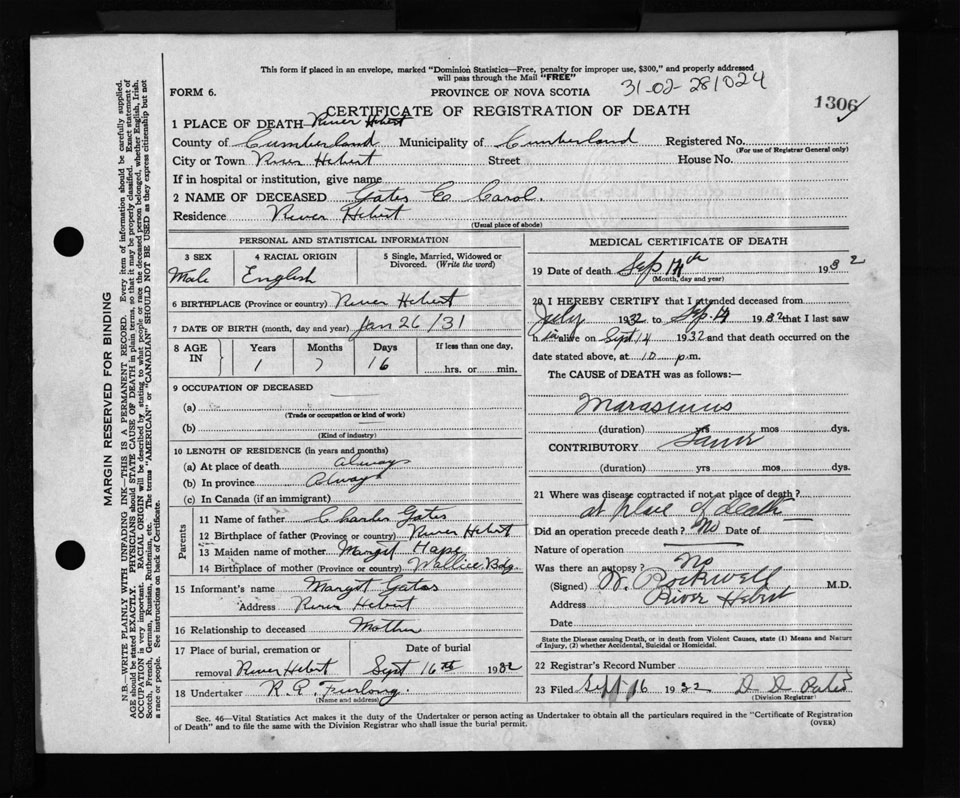 This form if placed in an envelope, marked "Dominion Statistics—Free, penalty for improper use, $300," and properly addressed
will pass through the Mail "FREE"
FORM 6.
PROVINCE OF NOVA SCOTIA
31-02-281024
1306
CERTIFICATE OF REGISTRATION OF DEATH
1 PLACE OF DEATH River Hebert
County of Cumberland Municipality of Cumberland Registered No.
(For use of Registrar General only)
City or Town River Hebert Street House No.
If in hospital or institution, give name
2 NAME OF DECEASED Gates C Carol.
Residence River Hebert
(Usual place of abode)
PERSONAL AND STATISTICAL INFORMATION
3 SEX
Male
4 RACIAL ORIGIN
English
5 Single, Married, Widowed or
Divorced. (Write the word)
6 BIRTHPLACE (Province or country) River Hebert
7 DATE OF BIRTH (month, day and year) Jan 26/31
8 AGE IN Years Months Days If less than one day,
1 7 16 hrs. or min.
9 OCCUPATION OF DECEASED
(a)
(Trade or occupation or kind of work)
(b)
(Kind of industry)
10 LENGTH OF RESIDENCE (in years and months)
(a) At place of death always
(b) In province Always
(c) In Canada (if an immigrant)
Parents
11 Name of father Charles Gates
12 Birthplace of father (Province or country) River Hebert
13 Maiden name of mother Margt
14 Birthplace of mother (Province or country) Wallace Bdg.
15 Informant's name Margt Gates
Address River Hebert
16 Relationship to deceased Mother
17 Place of burial, cremation or
removal River Hebert
Date of burial
Sept 16th 1932
18 Undertaker R. R. Furlong.
(Name and address)
MEDICAL CERTIFICATE OF DEATH
19 Date of death Sep 14th 1932
(Month, day and year)
20 I HEREBY CERTIFY that I attended deceased from
July 1932 to Sep. 14 1932 that I last saw
him alive on Sept 14 1932 and that death occurred on the
date stated above, at 10 p.m.
The CAUSE of DEATH was as follows:—
Marasmus
(duration) yrs mos dys.
CONTRIBUTORY Same
(duration) yrs mos dys.
21 Where was disease contracted if not at place of death?
at place of death
Did an operation precede death? No Date of
Nature of operation
Was there an autopsy? No
(Signed) W. Rockwell M.D.
Address River Hebert
Date
State the Disease causing Death, or in death from Violent Causes, state (1) Means and Nature
of Injury, (2) whether Accidental, Suicidal or Homicidal.
22 Registrar's Record Number
23 Filed Sept 16 1932 D D
(Division Registrar)
Sec. 46—Vital Statistics Act makes it the duty of the Undertaker or person acting as Undertaker to obtain all the particulars required in the "Certificate of Registration
of Death" and to file the same with the Division Registrar who shall issue the burial permit.
(OVER)
MARGIN RESERVED FOR BINDING
N.B.—WRITE PLAINLY WITH UNFADING INK—THIS IS A PERMANENT RECORD. Every item of information should be carefully supplied.
AGE should be stated EXACTLY. PHYSICIANS should STATE CAUSE OF DEATH in plain terms, so that it may be properly classified. Exact statement of
OCCUPATION is very important. RACIAL ORIGIN will be described by stating to what people or race the deceased person belonged, whether English, Irish,
Scotch, French, German, Russian, Ruthenian, etc. The terms "AMERICAN" or "CANADIAN" SHOULD NOT BE USED as they express citizenship but not
a race or people. See instructions on back of Certificate.